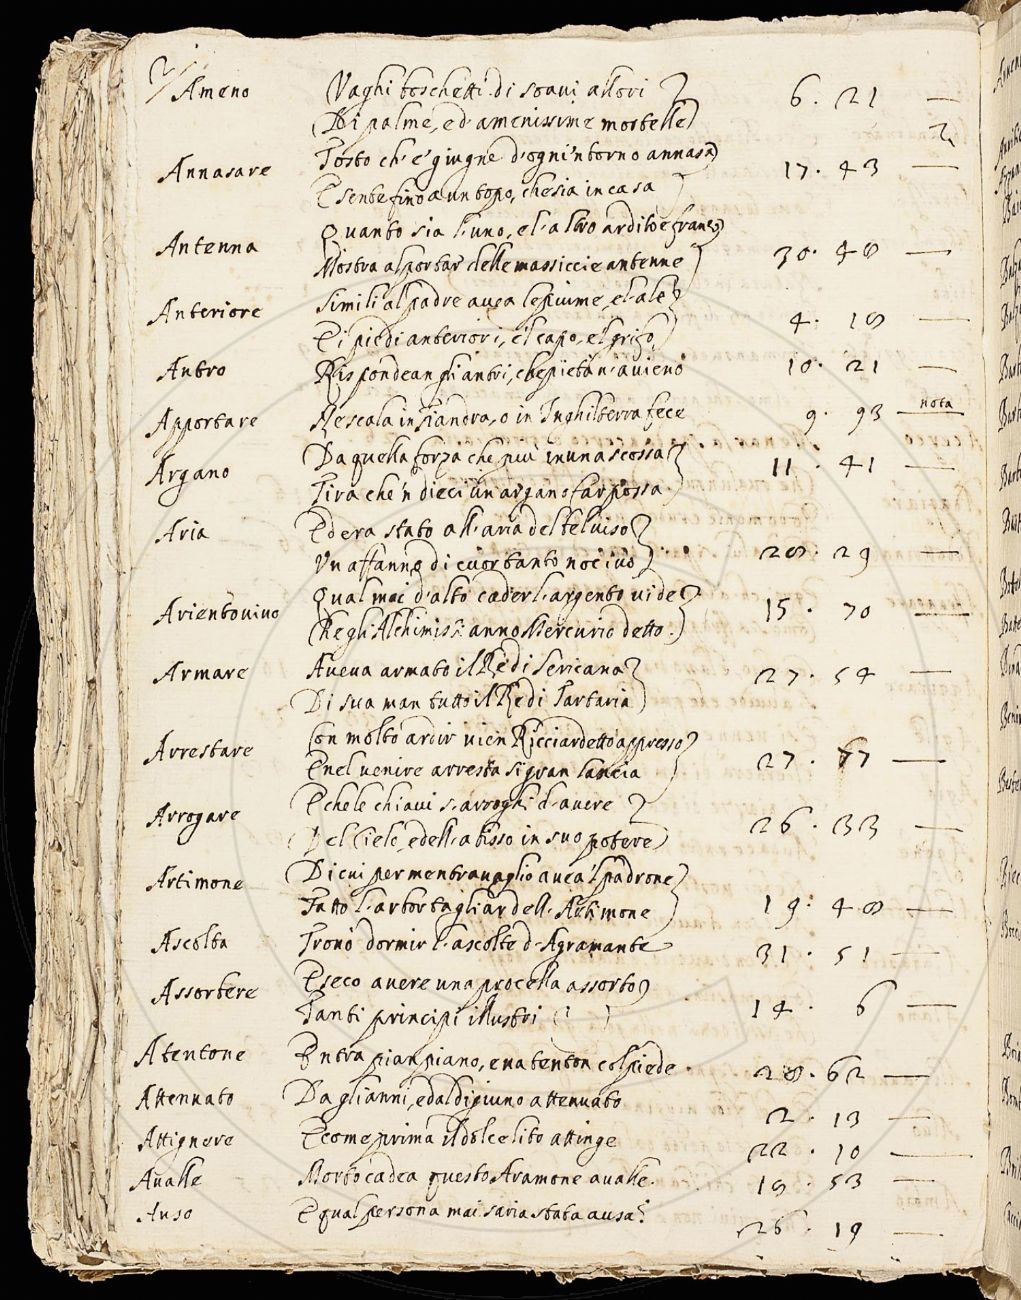 2
Ameno Vaghi boschetti di soavi allori 6. 21 —
Di palme, ed amenissime mortelle
Annasare Tosto ch'è giugne d'ogn'intorno annasa 17. 43 — 2
E sente fino a un topo, che sia in casa
Antenna Quanto sia l'uno, e l'altro ardito e franco 30. 48 —
Mostra al portar delle massiccie antenne
Anteriore Simili al padre avea le piume, e l'ale 4. 18 —
E i piedi anteriori, e il capo, e l' grifo
Antro Rispondean gli antri, che pietà n'avieno 10. 21 —
Apportare Ne scala in fiandra, o in Inghilterra fece 9. 93 — nota
Argano Da quella forza che più in una scossa 11. 41 —
Tira che 'n dieci un argano far possa.
Aria Ed era stato all'aria del bel viso 28. 29 —
Un affanno di cuor tanto nocivo
Arientovivo Qual mai d'alto cader l'argento vide 15. 70 —
Che gli Alchimisti anno Mercurio detto.
Armare Aveva armato il Re di Sericana 27. 54 —
Di sua man tutto il Re di Tartaria
Arrestare Con molto ardir vien Ricciardetto appresso 27. 77 —
E nel venire arresta sì gran lancia
Arrogare E che le chiavi s'arroghi d'avere 26. 33 —
Del Cielo, e dell'abisso in suo potere
Artimone Di cui per men travaglio avea 'l padrone 19. 48 —
Fatto l'arbor tagliar dell'Artimone
Ascolta Trovò dormir l'ascolte d'Agramante 31. 51 —
Assorbere E seco avere una procella assorto
Tanti principi illustri ( ) 14. 6 —
Atentone Entra pian piano, e va tenton col piede 28. 62 —
Attennato Da gli anni, e dal digiuno attenuato 2. 13 —
Attignere E come prima il dolce lito attinge 22. 10 —
Avalle Morto cadea questo Aramone a valle. 18. 53 —
Auso E qual persona mai saria stata ausa? 26. 19 —